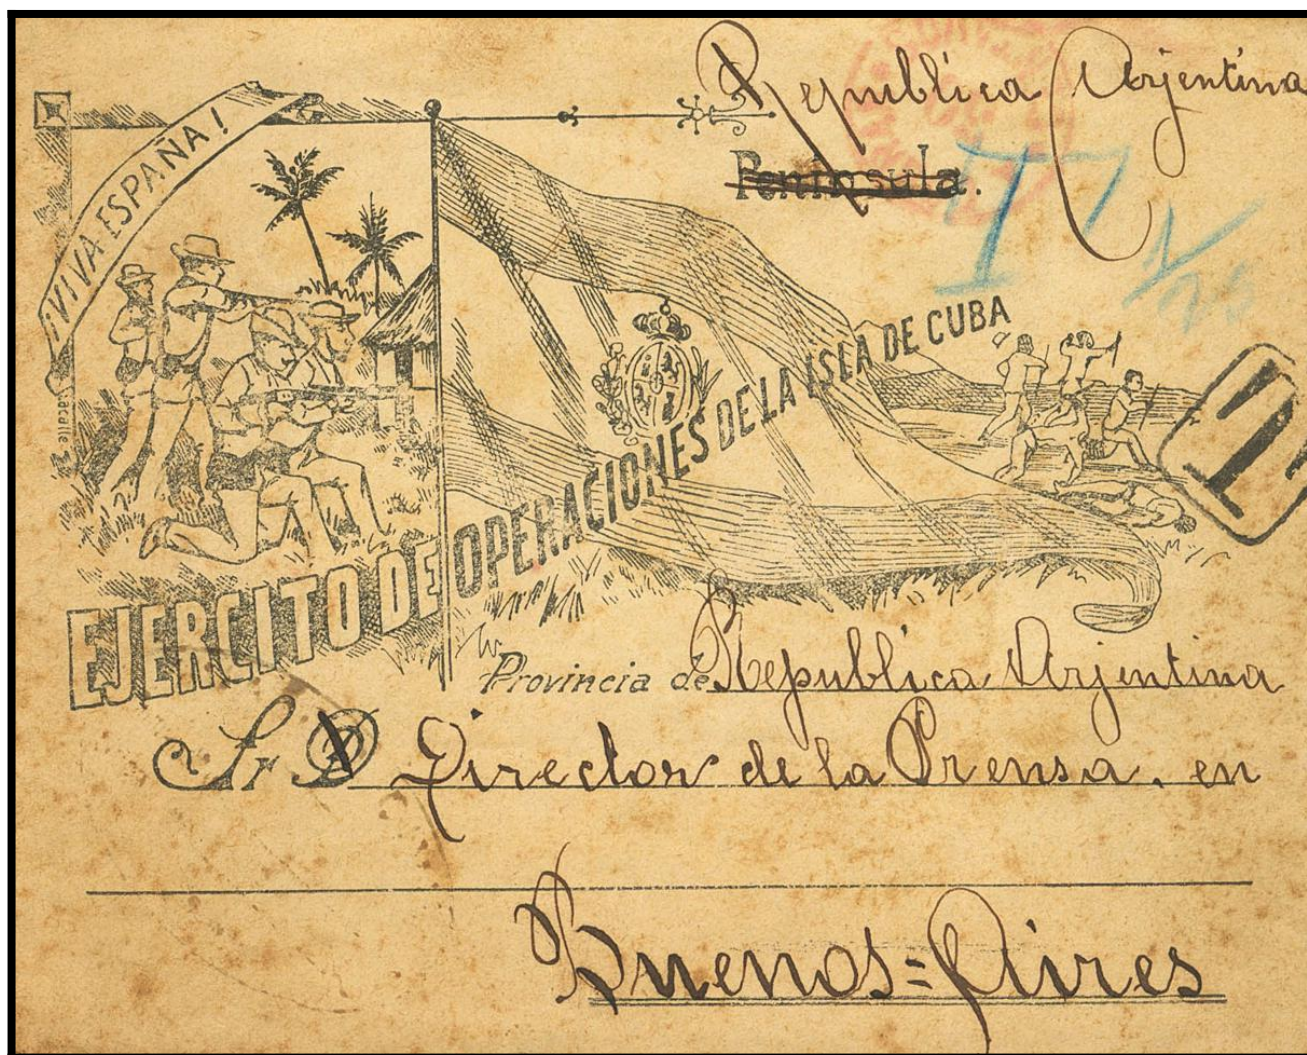 Republica Arjentina
Peninsula.
¡VIVA ESPAÑA!
EJERCITO DE OPERACIONES DE LA ISLA DE CUBA
T
Provincia de Republica Arjentina
Sr D Director de la Prensa. en
Buenos=Aires